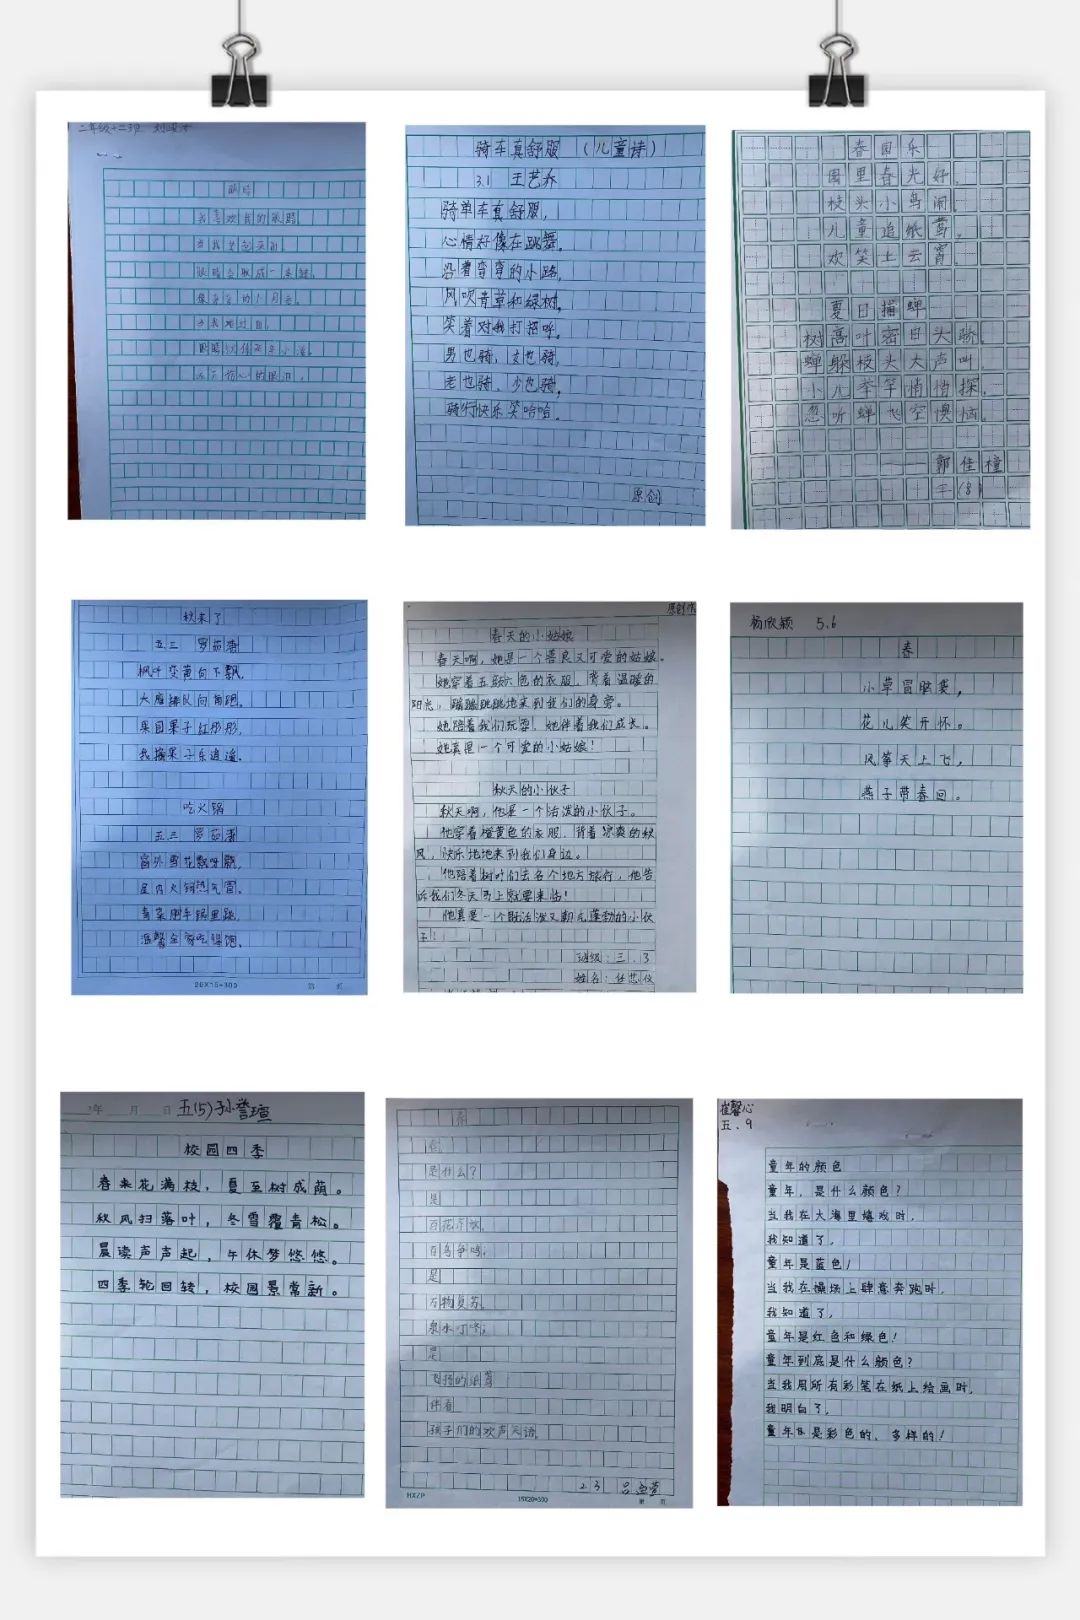 二年级十二班
眼睛
我喜欢我的眼睛
当我笑起来时
眼睛会眯成一条缝
像弯弯的小月亮。
当我难过时,
骑车真舒服 (儿童诗)
3.1 王艺乔
骑单车真舒服,
心情好像在跳舞。
沿着弯弯的小路,
风吹青草和绿树。
笑着对我打招呼。
男也骑,女也骑,
老也骑、少也骑,
骑行快乐笑哈哈。
原创
春园乐
园里春光好,
枝头小鸟闹。
儿童追纸鸢,
欢笑上云霄。
夏日捕蝉
树高叶密日头骄,
蝉躲枝头大声叫
小儿举竿悄悄探,
忽听蝉飞空懊恼。
——郭佳橦
三(8)
秋来了
五三 罗茹潇
枫叶变黄向下飘,
大雁排队向南跑。
果园果子红彤彤,
我摘果子乐逍遥。
吃火锅
五三 罗茹潇
窗外雪花飘呀飘,
屋内火锅热气冒。
青菜肥牛锅里跳,
温馨全家吃得饱。
20X15=300
原创作
春天的小姑娘
春天啊,她是一个善良又可爱的姑娘。
她穿着五颜六色的衣服,背着温暖的
阳光,蹦蹦跳跳地来到我们的身旁。
她陪着我们玩耍,她伴着我们成长。
她真是一个可爱的小姑娘!
秋天的小伙子
秋天啊,他是一个活泼的小伙子。
他穿着橙黄色的衣服,背着凉爽的秋
风,快乐地来到我们身边。
他陪着树叶们去各个地方旅行,他告
诉我们冬天马上就要来临!
他真是一个既活泼又朝气蓬勃的小伙
子!
班级:三.3
姓名:任思仪
杨欣颖 5.6
春
小草冒脑袋,
花儿笑开怀。
风筝天上飞,
燕子带春回。
年 月 日 五(5)孙誉瑄
校园四季
春来花满枝,夏至树成荫。
秋风扫落叶,冬雪覆青松。
晨读声声起,午休梦悠悠。
四季轮回转,校园景常新。
春
春
是什么?
是
百花齐放,
百鸟争鸣,
是
万物复苏,
泉水叮咚,
是
飞扬的纸鸢
伴着
孩子们的欢声笑语
2.3
HXZP 15X20=300
崔馨心
五.9
童年的颜色
童年,是什么颜色?
当我在大海里嬉戏时,
我知道了,
童年是蓝色!
当我在操场上肆意奔跑时,
我知道了,
童年是红色和绿色!
童年到底是什么颜色?
当我用所有彩笔在纸上绘画时,
我明白了,
童年是彩色的、多样的!